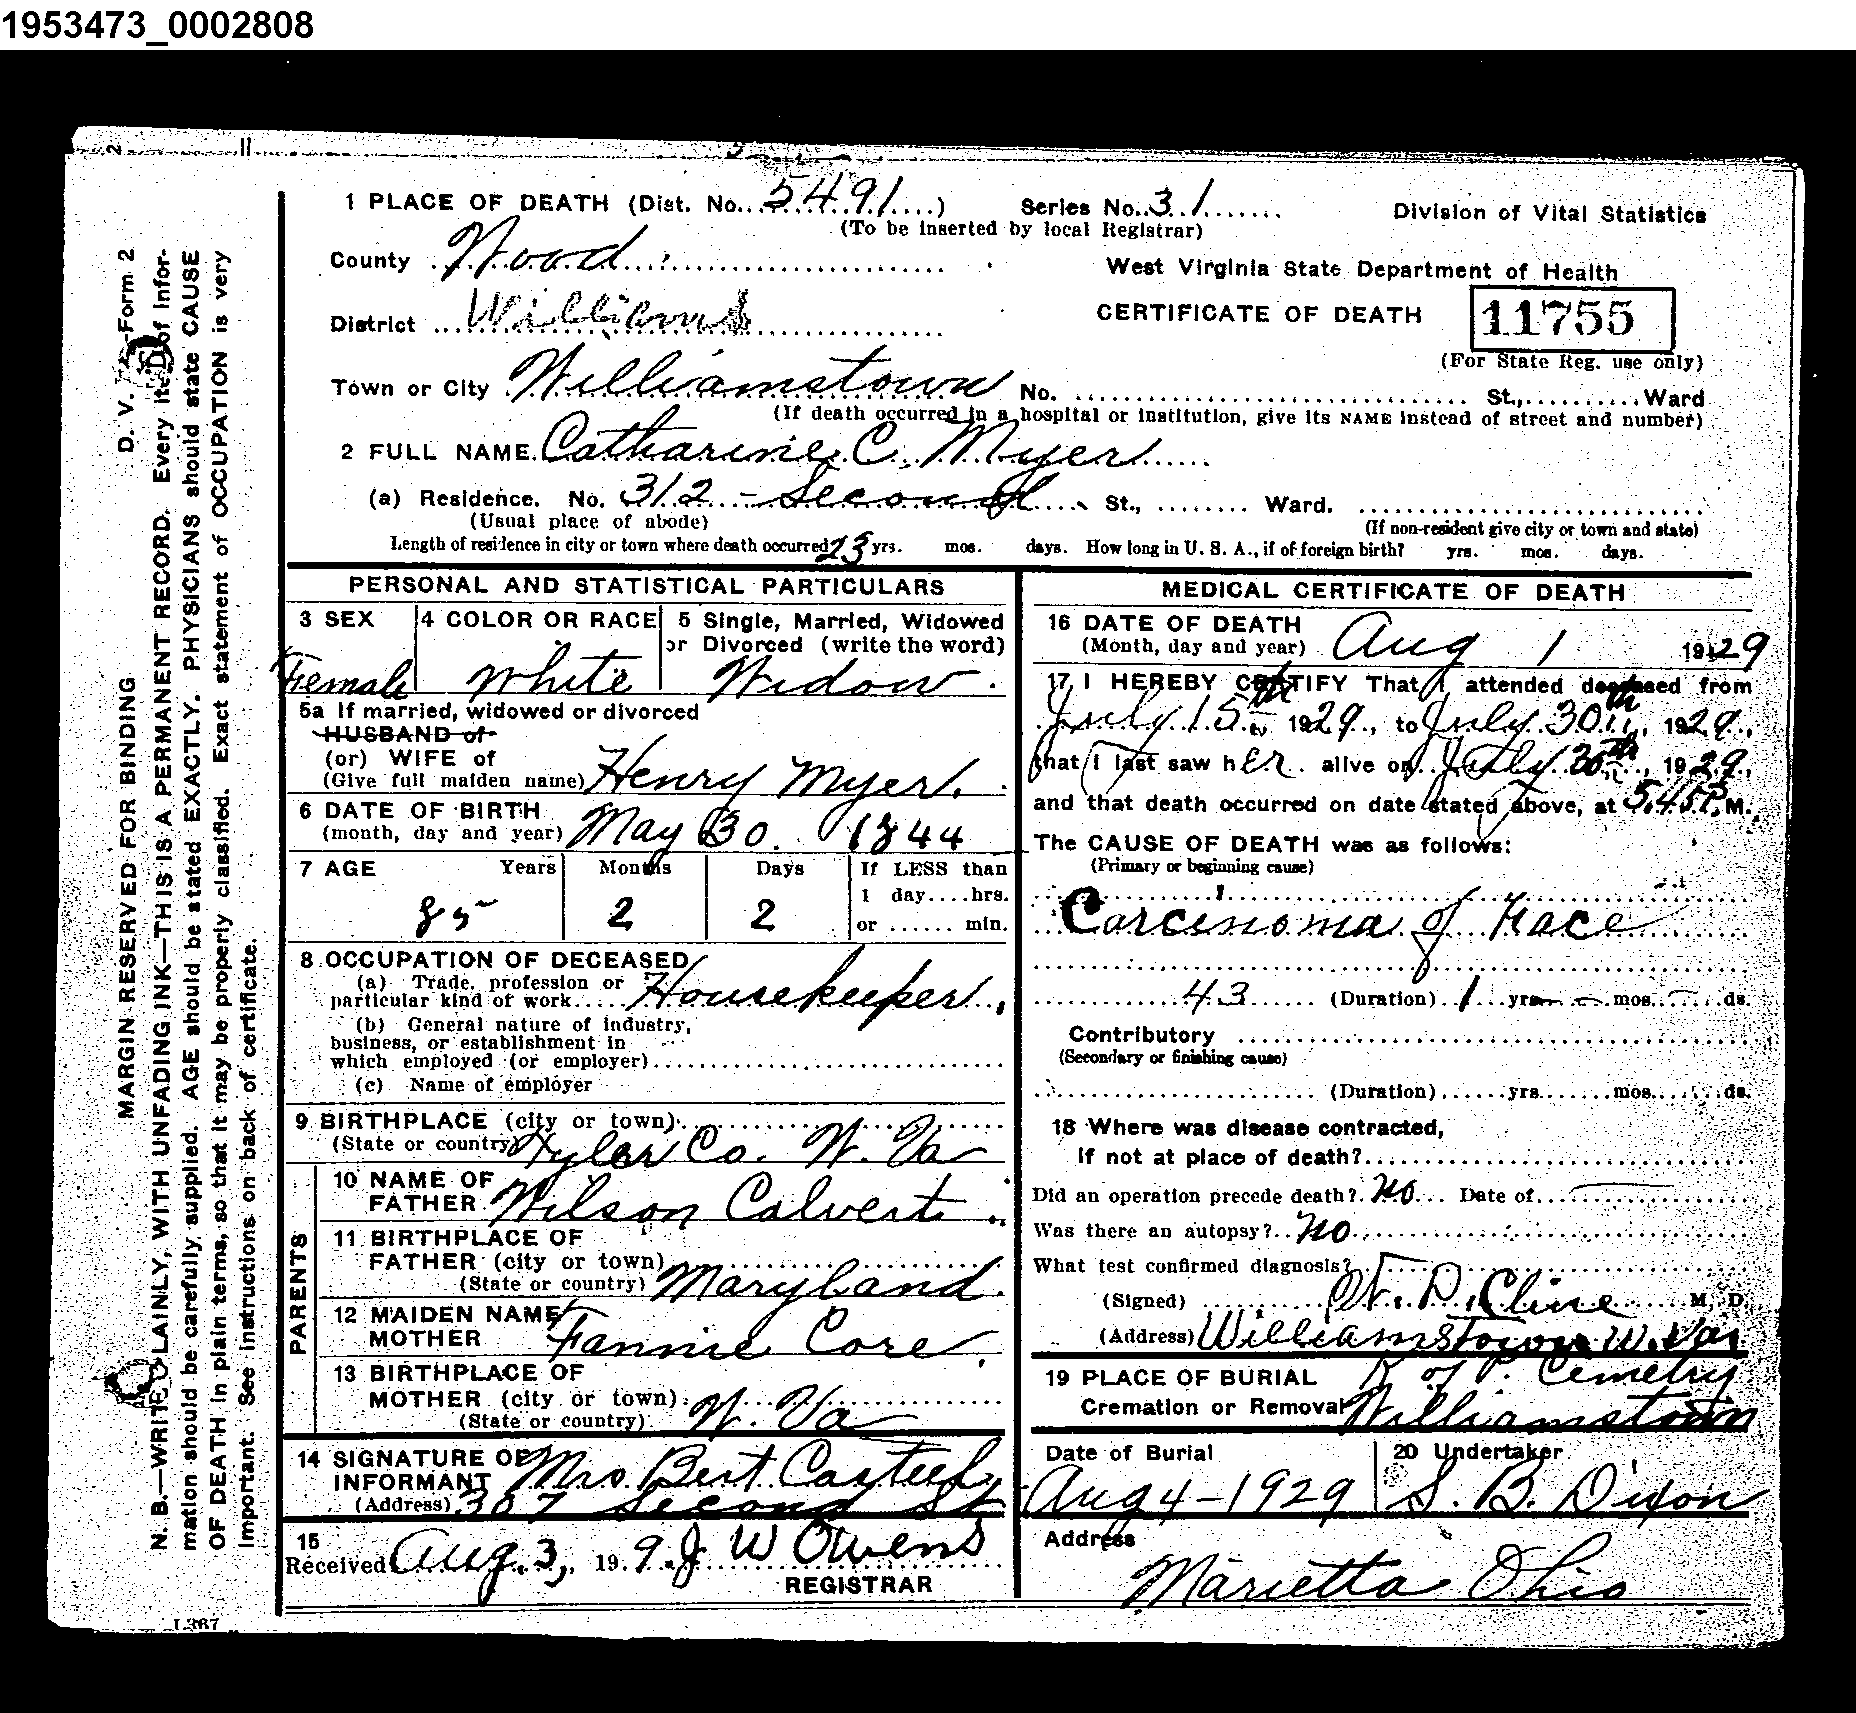 1953473_0002808
1 PLACE OF DEATH (Dist. No. 5491) Series No. 31 Division of Vital Statistics
(To be inserted by local Registrar)
County Wood West Virginia State Department of Health
District Williams CERTIFICATE OF DEATH 11755
(For State Reg. use only)
Town or City Williamstown No. St., Ward
(If death occurred in a hospital or institution, give its NAME instead of street and number)
2 FULL NAME Catharine C. Myer
(a) Residence. No. 312 - Second St., Ward.
(Usual place of abode) (If non-resident give city or town and state)
Length of residence in city or town where death occurred 23 yrs. mos. days. How long in U. S. A., if of foreign birth? yrs. mos. days.
PERSONAL AND STATISTICAL PARTICULARS
3 SEX 4 COLOR OR RACE 5 Single, Married, Widowed
or Divorced (write the word)
Female White Widow.
5a If married, widowed or divorced
HUSBAND of
(or) WIFE of
(Give full maiden name) Henry Myer.
6 DATE OF BIRTH
(month, day and year) May 30. 1844
7 AGE Years Months Days If LESS than
1 day....hrs.
85 2 2 or ...... min.
8 OCCUPATION OF DECEASED
(a) Trade, profession or
particular kind of work Housekeeper.
(b) General nature of industry,
business, or establishment in
which employed (or employer)
(c) Name of employer
9 BIRTHPLACE (city or town)
(State or country) Tyler Co. W. Va
PARENTS
10 NAME OF
FATHER Wilson Calvert.
11 BIRTHPLACE OF
FATHER (city or town)
(State or country) Maryland.
12 MAIDEN NAME
MOTHER Fannie Core.
13 BIRTHPLACE OF
MOTHER (city or town)
(State or country) W. Va
14 SIGNATURE OF
INFORMANT Mrs. Bert Casteel
(Address) 307 Second St
15
Received Aug. 3, 19 9. J W Owens
REGISTRAR
MEDICAL CERTIFICATE OF DEATH
16 DATE OF DEATH
(Month, day and year) Aug 1 1929
17 I HEREBY CERTIFY That I attended deceased from
July 15th 1929, to July 30th, 1929,
that I last saw her alive on July 30th, 1929,
and that death occurred on date stated above, at 5.45 P. M.
The CAUSE OF DEATH was as follows:
(Primary or beginning cause)
Carcinoma of Face
43 (Duration) 1 yrs. - mos. - ds.
Contributory
(Secondary or finishing cause)
(Duration) yrs. mos. ds.
18 Where was disease contracted,
if not at place of death?
Did an operation precede death? No Date of
Was there an autopsy? No
What test confirmed diagnosis?
(Signed) W. D. Cline M. D.
(Address) Williamstown W. Va
19 PLACE OF BURIAL K of P. Cemetry
Cremation or Removal Williamstown
Date of Burial 20 Undertaker
Aug 4 - 1929 S. B. Dixon
Address
Marietta Ohio
D. V. Form 2
MARGIN RESERVED FOR BINDING
N. B.—WRITE PLAINLY, WITH UNFADING INK—THIS IS A PERMANENT RECORD. Every item of infor-
mation should be carefully supplied. AGE should be stated EXACTLY. PHYSICIANS should state CAUSE
OF DEATH in plain terms, so that it may be properly classified. Exact statement of OCCUPATION is very
important. See instructions on back of certificate.